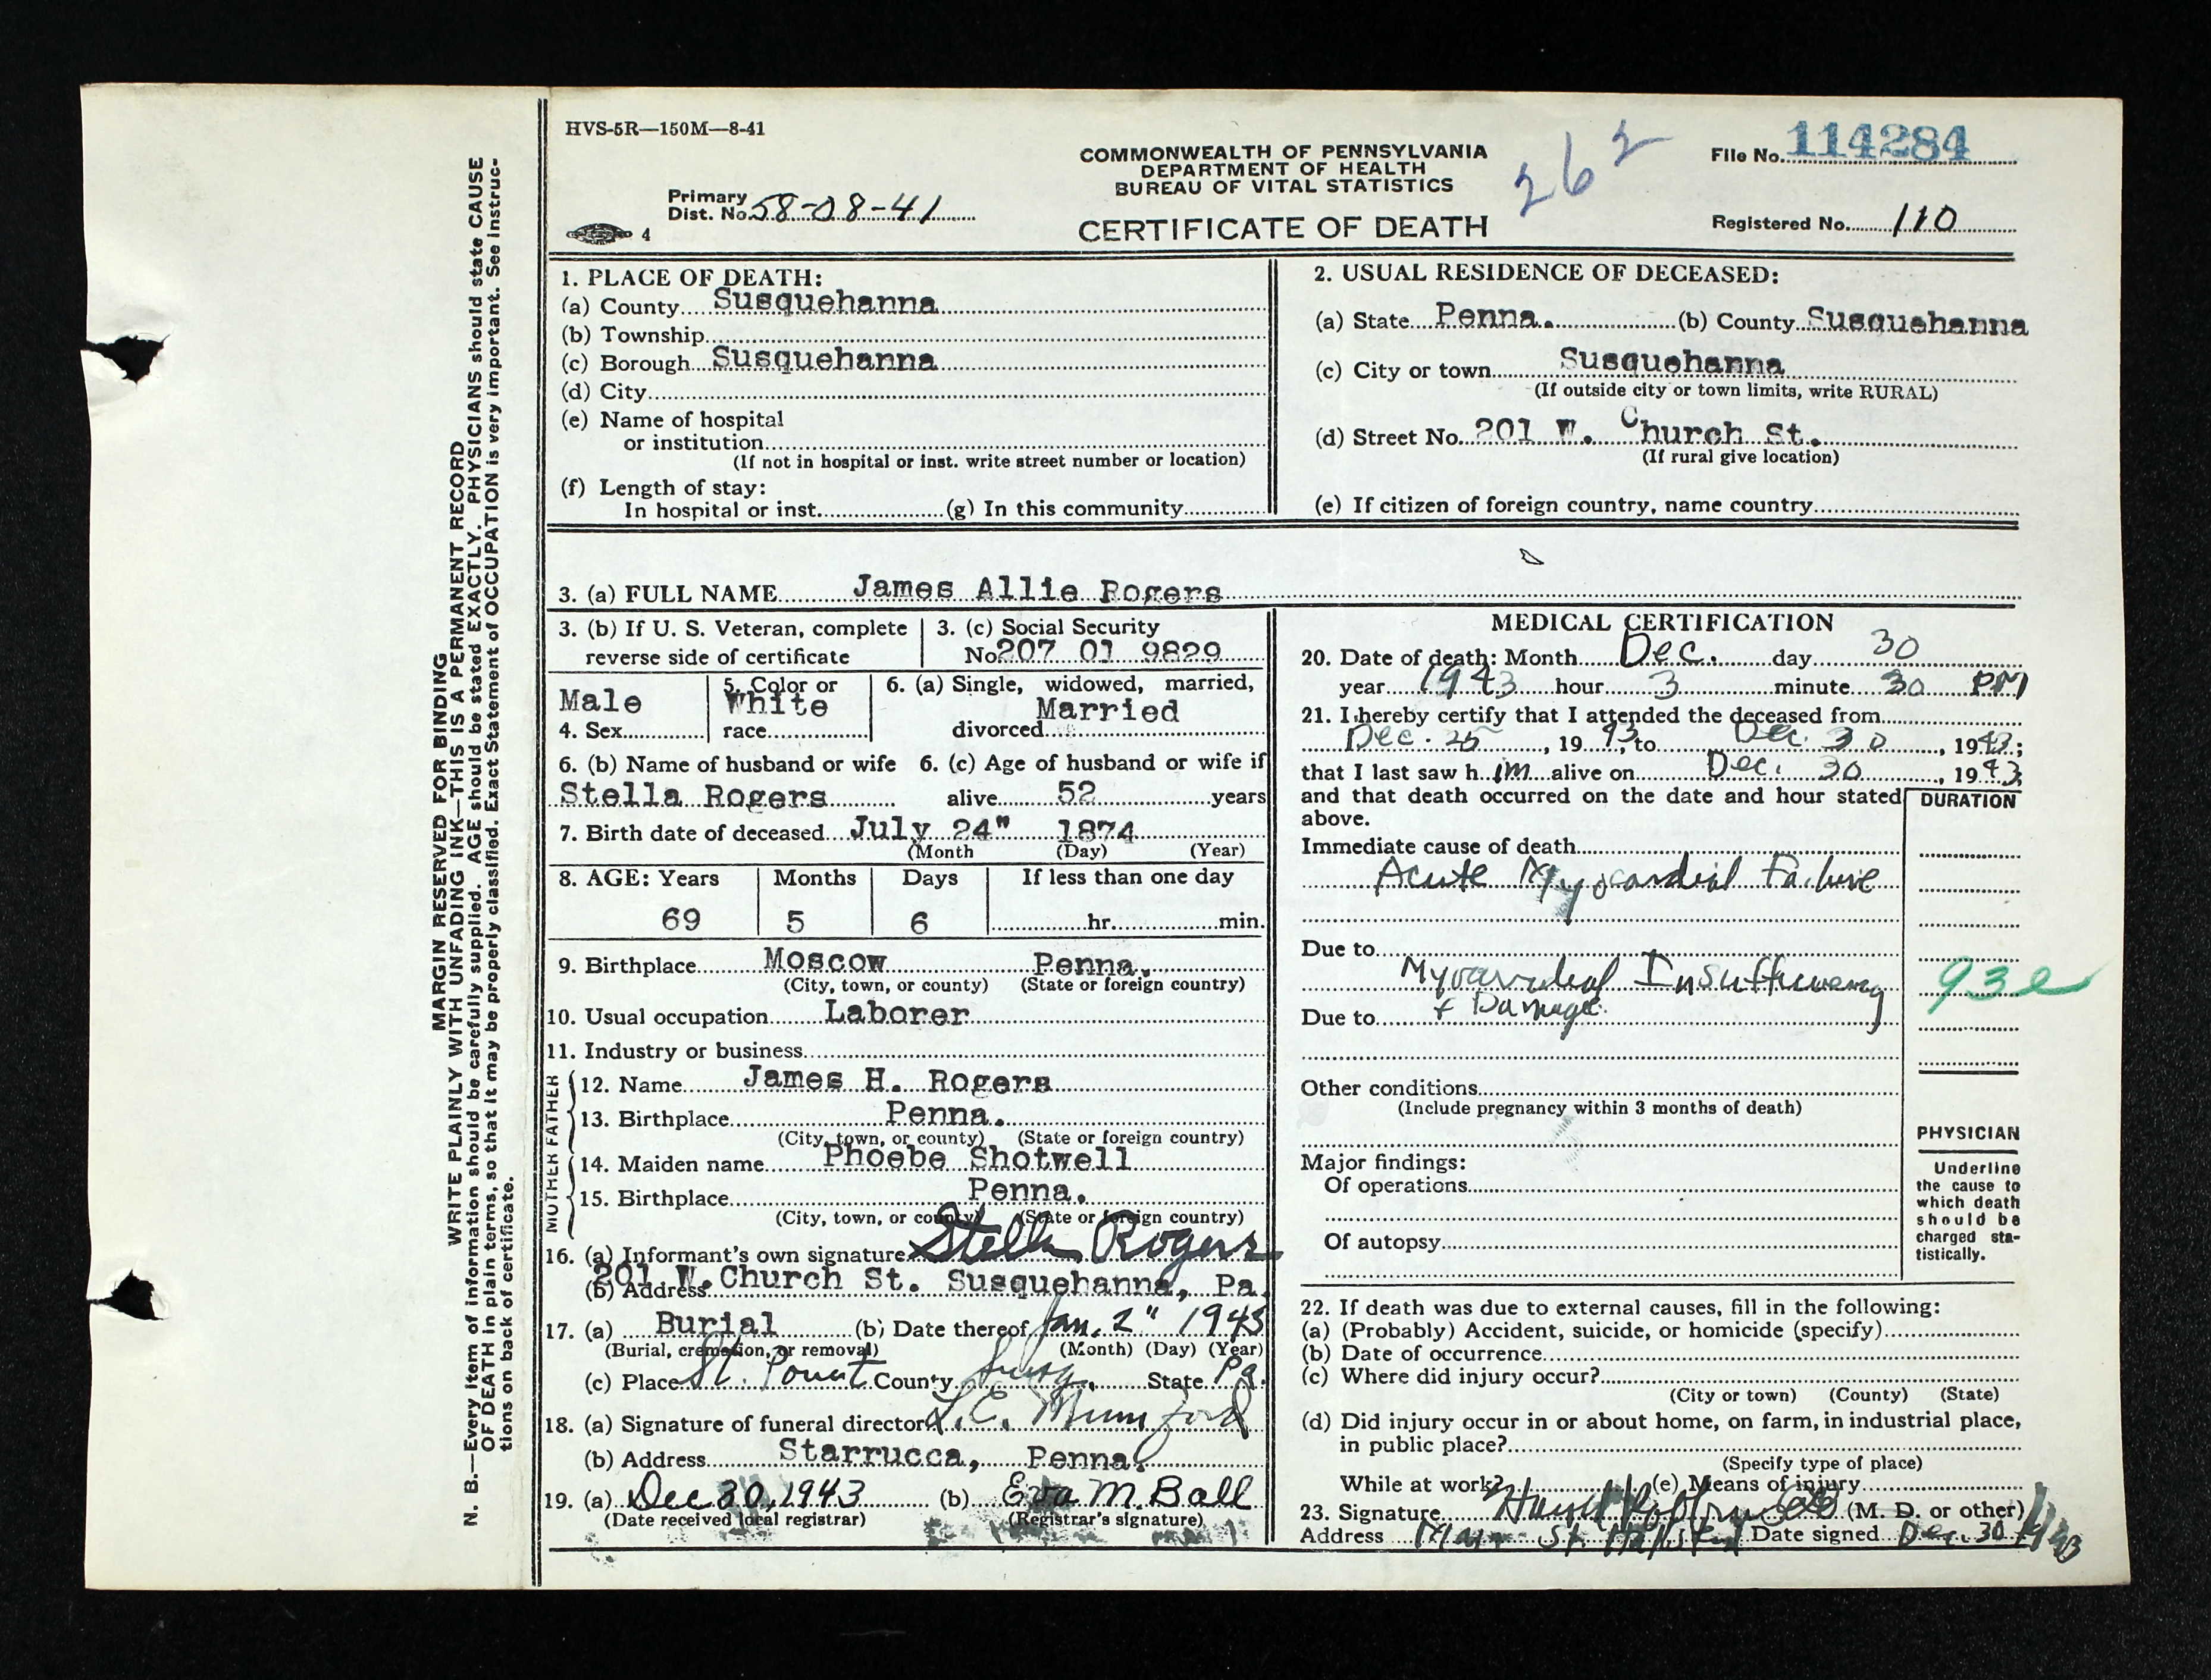 HVS-5R—150M—8-41
COMMONWEALTH OF PENNSYLVANIA
DEPARTMENT OF HEALTH
BUREAU OF VITAL STATISTICS
CERTIFICATE OF DEATH
262
File No. 114284
Primary
Dist. No. 58-08-41
4
Registered No. 110
MARGIN RESERVED FOR BINDING
WRITE PLAINLY WITH UNFADING INK—THIS IS A PERMANENT RECORD
N. B.—Every item of information should be carefully supplied. AGE should be stated EXACTLY. PHYSICIANS should state CAUSE
OF DEATH in plain terms, so that it may be properly classified. Exact Statement of OCCUPATION is very important. See instruc-
tions on back of certificate.
1. PLACE OF DEATH:
(a) County Susquehanna
(b) Township
(c) Borough Susquehanna
(d) City
(e) Name of hospital
or institution
(If not in hospital or inst. write street number or location)
(f) Length of stay:
In hospital or inst. (g) In this community
2. USUAL RESIDENCE OF DECEASED:
(a) State Penna. (b) County Susquehanna
(c) City or town Susquehanna
(If outside city or town limits, write RURAL)
(d) Street No. 201 W. Church St.
(If rural give location)
(e) If citizen of foreign country, name country
3. (a) FULL NAME James Allie Rogers
3. (b) If U. S. Veteran, complete
reverse side of certificate
3. (c) Social Security
No. 207 01 9829
Male
4. Sex
5. Color or
White
race
6. (a) Single, widowed, married,
Married
divorced
6. (b) Name of husband or wife
Stella Rogers
6. (c) Age of husband or wife if
alive 52 years
7. Birth date of deceased July 24" 1874
(Month (Day) (Year)
8. AGE: Years Months Days If less than one day
69 5 6 hr. min.
9. Birthplace Moscow Penna.
(City, town, or county) (State or foreign country)
10. Usual occupation Laborer
11. Industry or business
FATHER
12. Name James H. Rogers
13. Birthplace Penna.
(City, town, or county) (State or foreign country)
MOTHER
14. Maiden name Phoebe Shotwell
15. Birthplace Penna.
(City, town, or county) (State or foreign country)
16. (a) Informant's own signature Stella Rogers
201 W. Church St. Susquehanna, Pa.
(b) Address
17. (a) Burial (b) Date thereof Jan. 2" 1943
(Burial, cremation, or removal) (Month) (Day) (Year)
(c) Place County Susq. State Pa.
18. (a) Signature of funeral director L.E. Mumford
(b) Address Starrucca, Penna.
19. (a) Dec 30, 1943 (b) Eva M. Ball
(Date received local registrar) (Registrar's signature)
MEDICAL CERTIFICATION
20. Date of death: Month Dec. day 30
year 1943 hour 3 minute 30 PM
21. I hereby certify that I attended the deceased from
Dec. 25, 1943, to Dec. 30, 1943;
that I last saw him alive on Dec. 30, 1943,
and that death occurred on the date and hour stated
above.
DURATION
Immediate cause of death
Acute Myocardial Failure
Due to
Myocardial Insufficiency
93e
Due to + Damage.
Other conditions
(Include pregnancy within 3 months of death)
Major findings:
Of operations
Of autopsy
PHYSICIAN
Underline
the cause to
which death
should be
charged sta-
tistically.
22. If death was due to external causes, fill in the following:
(a) (Probably) Accident, suicide, or homicide (specify)
(b) Date of occurrence
(c) Where did injury occur?
(City or town) (County) (State)
(d) Did injury occur in or about home, on farm, in industrial place,
in public place?
(Specify type of place)
While at work? (e) Means of injury
23. Signature (M. D. or other)
Address Main St. Date signed Dec. 30